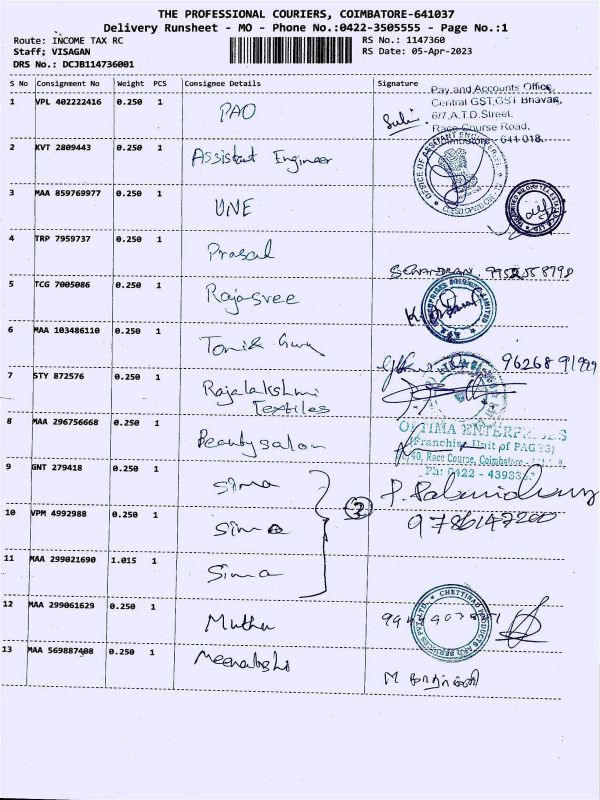 THE PROFESSIONAL COURIERS, COIMBATORE-641037
Delivery Runsheet - MO - Phone No.:0422-3505555 - Page No.:1
Route: INCOME TAX RC
RS No.: 1147360
Staff: VISAGAN
RS Date: 05-Apr-2023
DRS No.: DCJB114736001
S No Consignment No Weight PCS Consignee Details Signature
Pay and Accounts Office,
Central GST, GST Bhavan,
6/7, A.T.D. Street,
Race Course Road,
Coimbatore - 641 018.
1 VPL 402222416 0.250 1 PAO
2 KVT 2809443 0.250 1 Assistant Engineer
3 MAA 859769977 0.250 1 UNE
4 TRP 7959737 0.250 1 Prasad
5 TCG 7005086 0.250 1 Rajasree
6 MAA 103486110 0.250 1
96268 91999
7 STY 872576 0.250 1 Rajalakshmi
Textiles
8 MAA 296756668 0.250 1 Beautysalon
OPTIMA ENTERPRISES
(Franchise Unit of PAGE 3)
40, Race Course, Coimbatore
Ph: 0422 -
9 GNT 279418 0.250 1 Sima
10 VPM 4992988 0.250 1 Sima
3
11 MAA 299021690 1.015 1 Sima
12 MAA 299061629 0.250 1 Muthu
CHETTINAD
13 MAA 569887408 0.250 1 Meenakshi
M